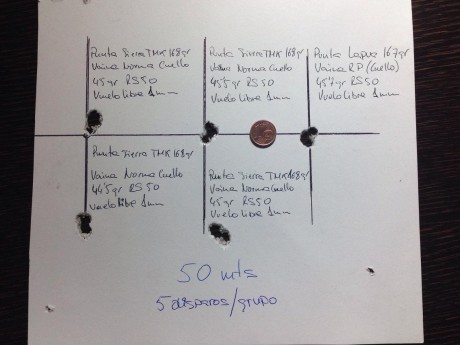 Punta Sierra TMK 168gr
Vaina Norma Cuello
45gr RS50
Vuelo libre 1mm
Punta Sierra TMK 168gr
Vaina Norma Cuello
45'5gr RS50
Vuelo libre 1mm
Punta Lapua 167gr
Vaina RP (Cuello)
45'7gr RS50
Vuelo libre 1mm
Punta Sierra TMK 168gr
Vaina Norma Cuello
44'5gr RS50
Vuelo libre 1mm
Punta Sierra TMK 168gr
Vaina Norma Cuello
45gr RS50
Vuelo libre 1mm
50 mts
5 disparos/grupo